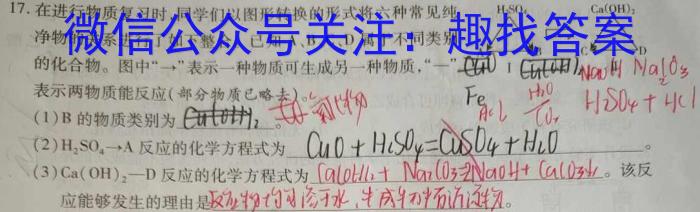 17. 在进行物质复习时,同学们以图形转换的形式将六种常见纯 H₂SO₄ Ca(OH)₂
微信公众号关注:趣找答案
的化合物。图中“→”表示一种物质可生成另一种物质,“— CuO Cu(OH)₂ NaOH Na₂CO₃
表示两物质能反应(部分物质已略去)。 Fe H₂O CO₂ H₂SO₄ + HCl
(1)B 的物质类别为 Cu(OH)₂ 。 氧化物
(2)H₂SO₄→A 反应的化学方程式为 CuO + H₂SO₄ = CuSO₄ + H₂O 。
(3)Ca(OH)₂—D 反应的化学方程式为 Ca(OH)₂ + Na₂CO₃ = NaOH + Ca(CO₃)₂ 。该反
应能够发生的理由是 反应物均可溶于水,生成物中有沉淀物 。